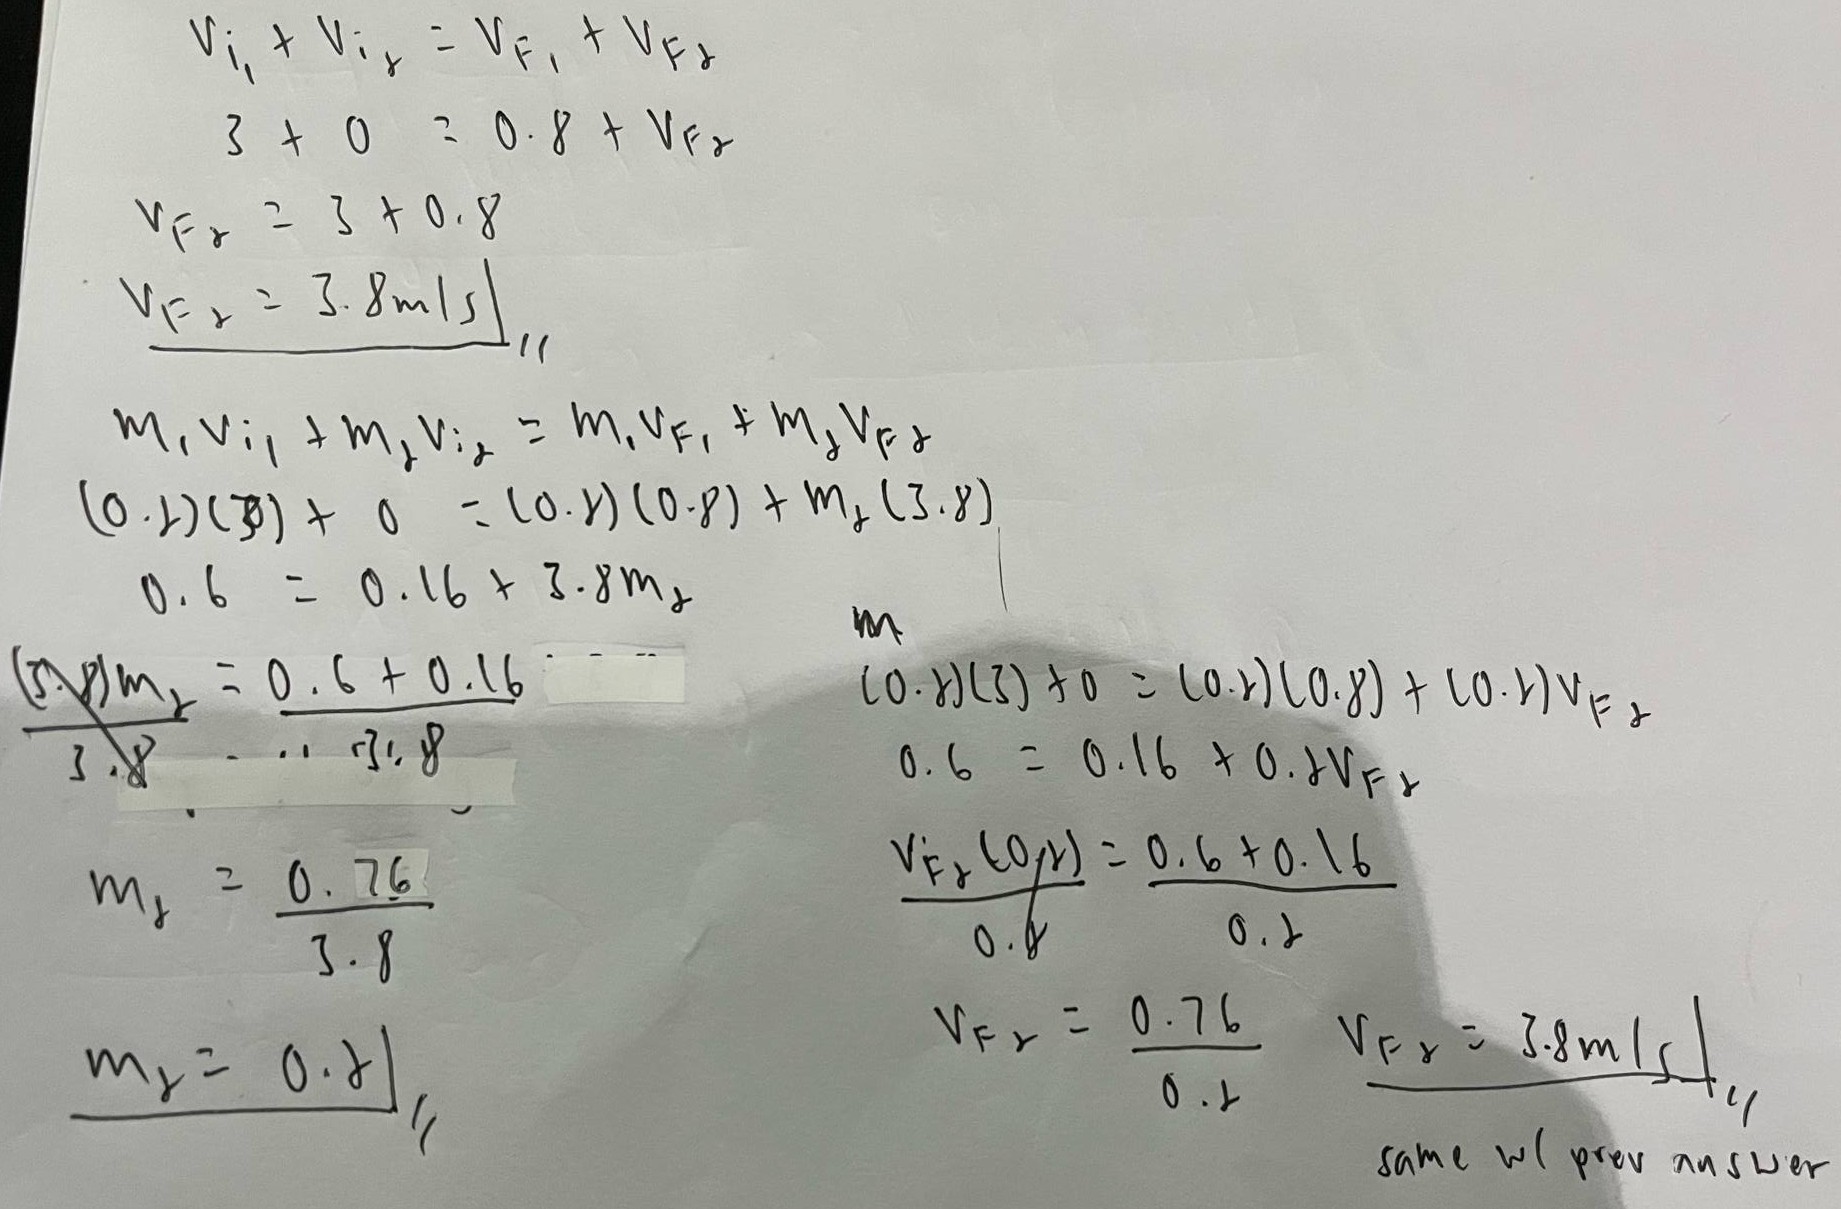 Vi₁ + Vi₂ = VF₁ + VF₂
3 + 0 = 0.8 + VF₂
VF₂ = 3 + 0.8
VF₂ = 3.8m/s
m₁Vi₁ + m₂Vi₂ = m₁VF₁ + m₂VF₂
(0.2)(3) + 0 = (0.2)(0.8) + m₂(3.8)
0.6 = 0.16 + 3.8m₂
(3.8)m₂ = 0.6 + 0.16
3.8 3.8
m₂ = 0.76
3.8
m₂ = 0.2
m
(0.2)(3) + 0 = (0.2)(0.8) + (0.2)VF₂
0.6 = 0.16 + 0.2VF₂
VF₂(0.2) = 0.6 + 0.16
0.2 0.2
VF₂ = 0.76
0.2
VF₂ = 3.8m/s
same w/ prev answer